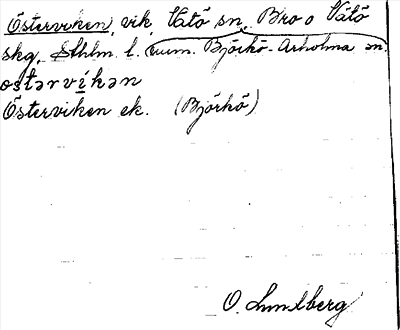 Österviken, vik, Vätö sn, Bro o Vätö
skg, Sthlm l. (num. Björkö-Arholma sn.
ostərvíkən
Österviken ek. (Björkö)
O. Lundberg